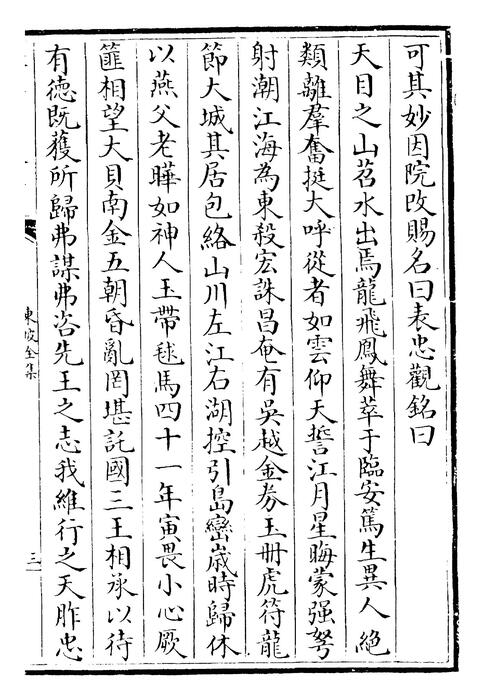 可其妙因院改賜名曰表忠觀銘曰
天目之山苕水出焉龍飛鳳舞萃于臨安篤生異人絶
類離羣奮挺大呼從者如雲仰天誓江月星晦蒙强弩
射潮江海為東殺宏誅昌奄有吳越金券玉冊虎符龍
節大城其居包絡山川左江右湖控引島巒嵗時歸休
以燕父老曄如神人玉帶毬馬四十一年寅畏小心厥
篚相望大貝南金五朝昏亂罔堪託國三王相承以待
有德既獲所歸弗謀弗咨先王之志我維行之天胙忠
東坡全集
三